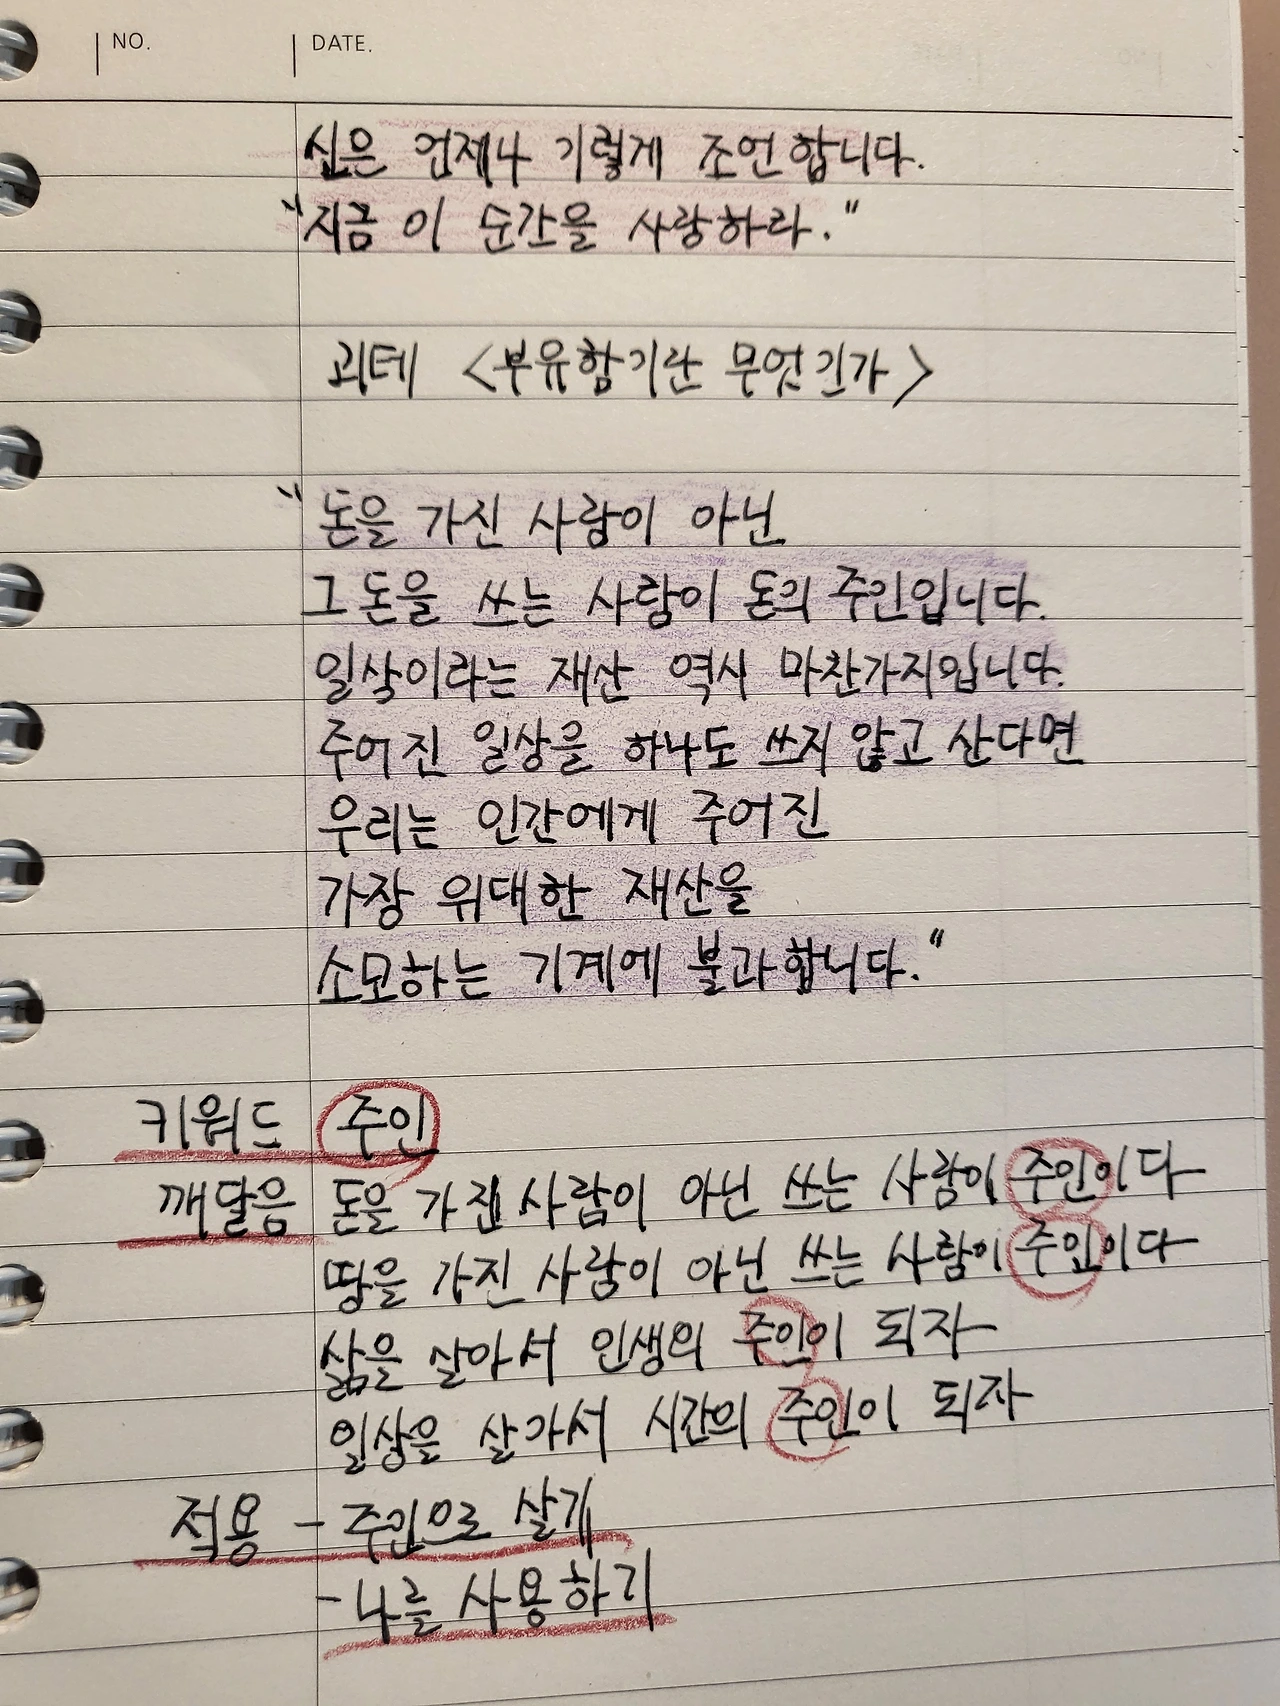 NO. DATE.
신은 언제나 이렇게 조언합니다.
"지금 이 순간을 사랑하라."
괴테 <부유함이란 무엇인가>
"돈을 가진 사람이 아닌
그 돈을 쓰는 사람이 돈의 주인입니다.
일상이라는 재산 역시 마찬가지입니다.
주어진 일상을 하나도 쓰지 않고 산다면
우리는 인간에게 주어진
가장 위대한 재산을
소모하는 기계에 불과합니다."
키워드 주인
깨달음 돈을 가진 사람이 아닌 쓰는 사람이 주인이다
땅을 가진 사람이 아닌 쓰는 사람이 주인이다
삶을 살아서 인생의 주인이 되자
일상을 살아서 시간의 주인이 되자
적용 - 주인으로 살기
- 나를 사용하기